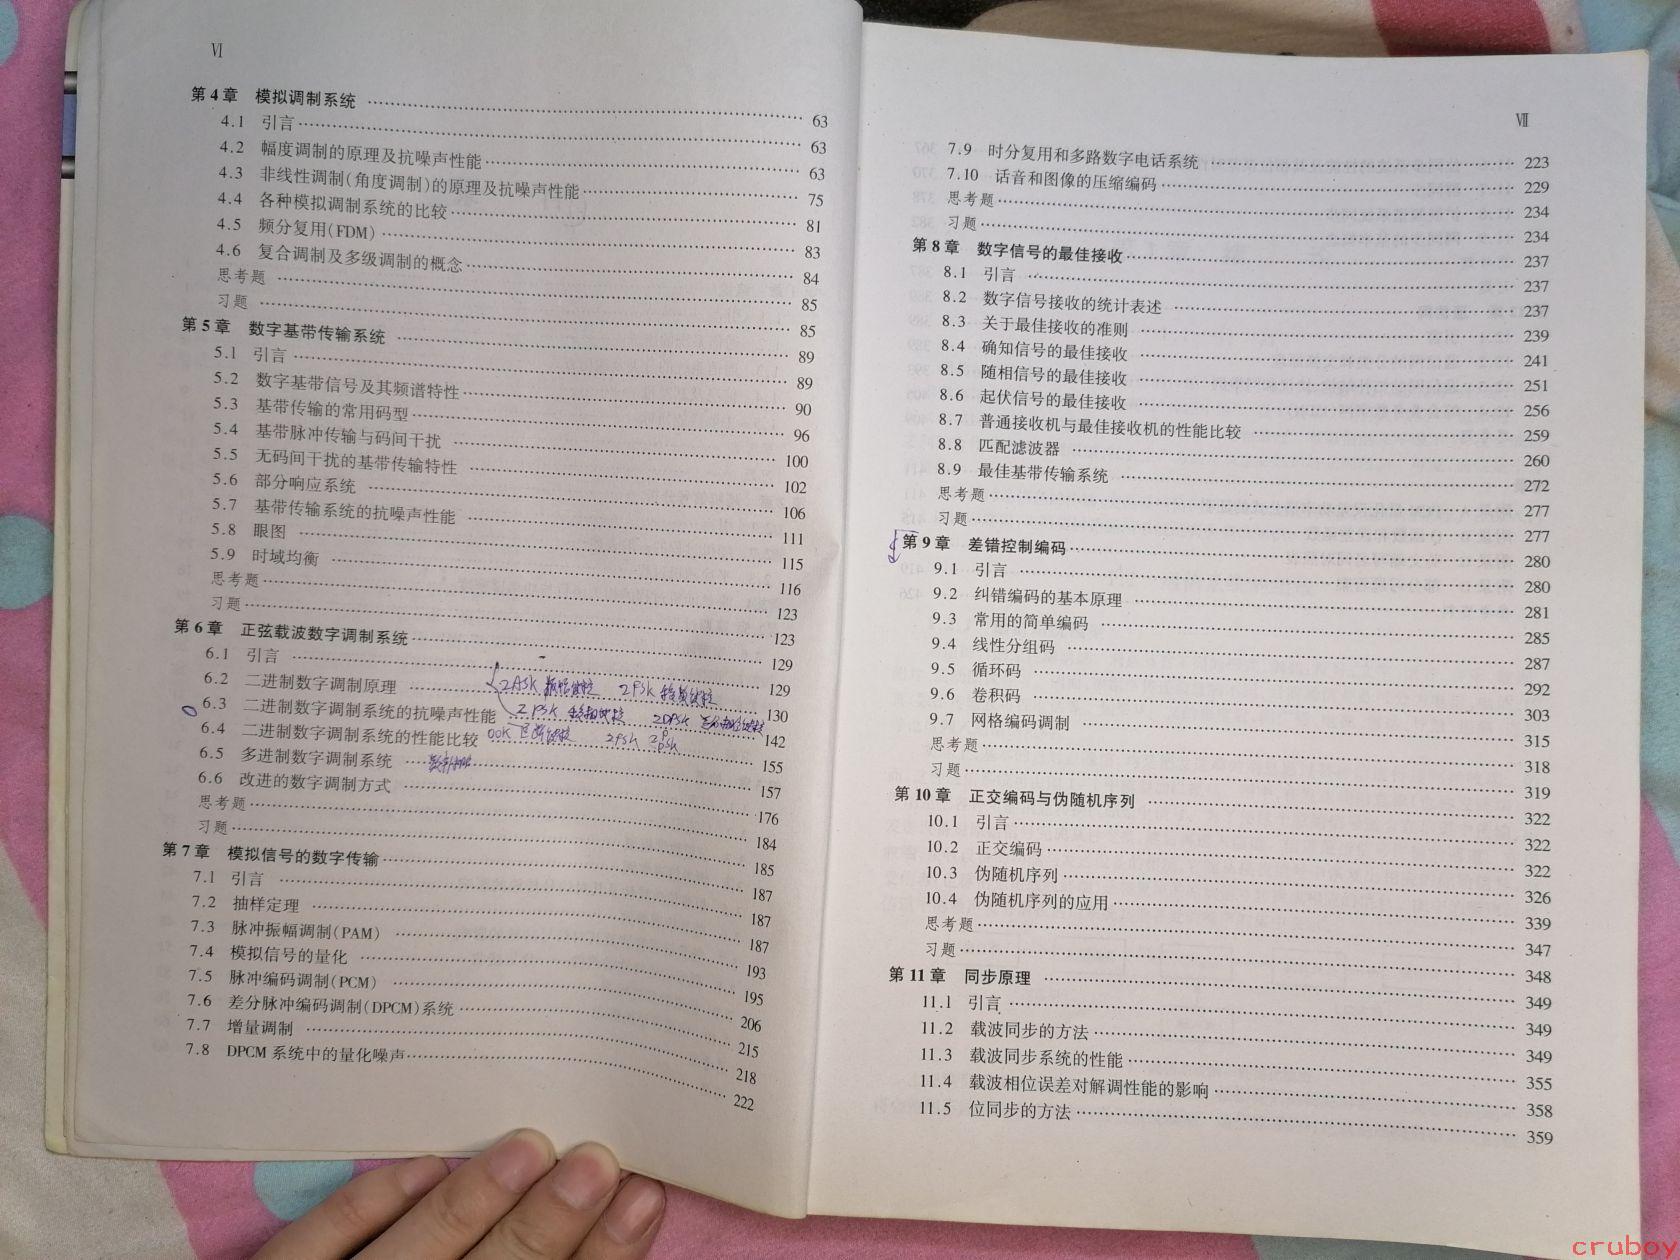 VI
第4章 模拟调制系统 …… 63
4.1 引言 …… 63
4.2 幅度调制的原理及抗噪声性能 …… 63
4.3 非线性调制(角度调制)的原理及抗噪声性能 …… 75
4.4 各种模拟调制系统的比较 …… 81
4.5 频分复用(FDM) …… 83
4.6 复合调制及多级调制的概念 …… 84
思考题 …… 85
习题 …… 85
第5章 数字基带传输系统 …… 89
5.1 引言 …… 89
5.2 数字基带信号及其频谱特性 …… 90
5.3 基带传输的常用码型 …… 96
5.4 基带脉冲传输与码间干扰 …… 100
5.5 无码间干扰的基带传输特性 …… 102
5.6 部分响应系统 …… 106
5.7 基带传输系统的抗噪声性能 …… 111
5.8 眼图 …… 115
5.9 时域均衡 …… 116
思考题 …… 123
习题 …… 123
第6章 正弦载波数字调制系统 …… 129
6.1 引言 …… 129
6.2 二进制数字调制原理 …… 130
2ASK 2FSK
6.3 二进制数字调制系统的抗噪声性能 …… 142
2PSK 2DPSK
6.4 二进制数字调制系统的性能比较 …… 155
OOK 2FSK
6.5 多进制数字调制系统 …… 157
6.6 改进的数字调制方式 …… 176
思考题 …… 184
习题 …… 185
第7章 模拟信号的数字传输 …… 187
7.1 引言 …… 187
7.2 抽样定理 …… 187
7.3 脉冲振幅调制(PAM) …… 193
7.4 模拟信号的量化 …… 195
7.5 脉冲编码调制(PCM) …… 206
7.6 差分脉冲编码调制(DPCM)系统 …… 215
7.7 增量调制 …… 218
7.8 DPCM系统中的量化噪声 …… 222
VII
7.9 时分复用和多路数字电话系统 …… 223
7.10 话音和图像的压缩编码 …… 229
思考题 …… 234
习题 …… 234
第8章 数字信号的最佳接收 …… 237
8.1 引言 …… 237
8.2 数字信号接收的统计表述 …… 237
8.3 关于最佳接收的准则 …… 239
8.4 确知信号的最佳接收 …… 241
8.5 随相信号的最佳接收 …… 251
8.6 起伏信号的最佳接收 …… 256
8.7 普通接收机与最佳接收机的性能比较 …… 259
8.8 匹配滤波器 …… 260
8.9 最佳基带传输系统 …… 272
思考题 …… 277
习题 …… 277
第9章 差错控制编码 …… 280
9.1 引言 …… 280
9.2 纠错编码的基本原理 …… 281
9.3 常用的简单编码 …… 285
9.4 线性分组码 …… 287
9.5 循环码 …… 292
9.6 卷积码 …… 303
9.7 网格编码调制 …… 315
思考题 …… 318
习题 …… 319
第10章 正交编码与伪随机序列 …… 322
10.1 引言 …… 322
10.2 正交编码 …… 322
10.3 伪随机序列 …… 326
10.4 伪随机序列的应用 …… 339
思考题 …… 347
习题 …… 348
第11章 同步原理 …… 349
11.1 引言 …… 349
11.2 载波同步的方法 …… 349
11.3 载波同步系统的性能 …… 355
11.4 载波相位误差对解调性能的影响 …… 358
11.5 位同步的方法 …… 359
cruboy